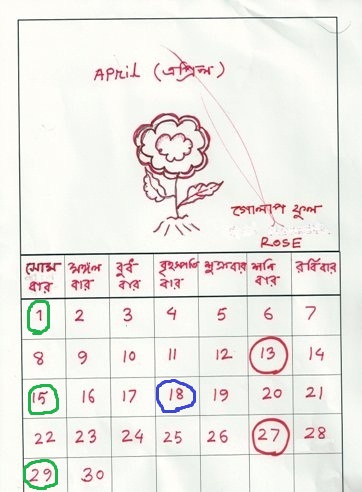 APRIL (এপ্রিল)
গোলাপ ফুল
ROSE
সোম বার মঙ্গল বার বুধ বার বৃহস্পতি বার শুক্রবার শনি বার রবিবার
1 2 3 4 5 6 7
8 9 10 11 12 13 14
15 16 17 18 19 20 21
22 23 24 25 26 27 28
29 30